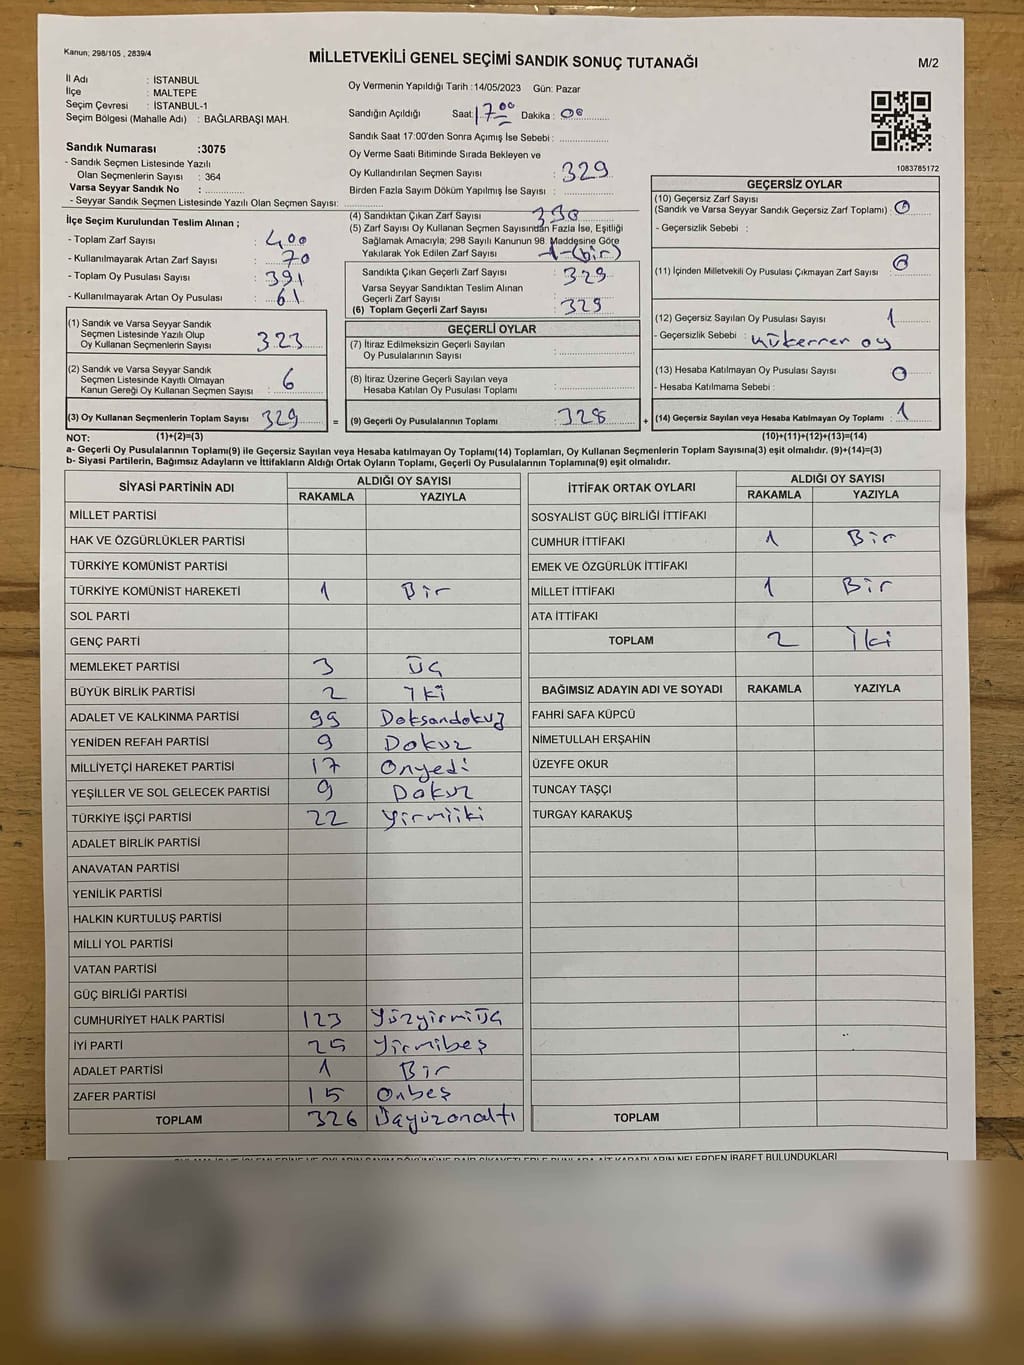 Kanun; 298/105 , 2839/4
MİLLETVEKİLİ GENEL SEÇİMİ SANDIK SONUÇ TUTANAĞI
M/2
İl Adı : İSTANBUL
İlçe : MALTEPE
Seçim Çevresi : İSTANBUL-1
Seçim Bölgesi (Mahalle Adı) : BAĞLARBAŞI MAH.
Sandık Numarası :3075
- Sandık Seçmen Listesinde Yazılı
Olan Seçmenlerin Sayısı : 364
Varsa Seyyar Sandık No : ..............
- Seyyar Sandık Seçmen Listesinde Yazılı Olan Seçmen Sayısı: ..............
Oy Vermenin Yapıldığı Tarih :14/05/2023 Gün: Pazar
Sandığın Açıldığı Saat: 17.00 Dakika : 00
Sandık Saat 17:00'den Sonra Açımış İse Sebebi : ..............
Oy Verme Saati Bitiminde Sırada Bekleyen ve
Oy Kullandırılan Seçmen Sayısı : 329
Birden Fazla Sayım Döküm Yapılmış İse Sayısı : ..............
1083785172
İlçe Seçim Kurulundan Teslim Alınan ;
- Toplam Zarf Sayısı : 400
- Kullanılmayarak Artan Zarf Sayısı : 70
- Toplam Oy Pusulası Sayısı : 391
- Kullanılmayarak Artan Oy Pusulası : 61
(1) Sandık ve Varsa Seyyar Sandık
Seçmen Listesinde Yazılı Olup
Oy Kullanan Seçmenlerin Sayısı : 323
(2) Sandık ve Varsa Seyyar Sandık
Seçmen Listesinde Kayıtlı Olmayan
Kanun Gereği Oy Kullanan Seçmen Sayısı : 6
(3) Oy Kullanan Seçmenlerin Toplam Sayısı 329
(4) Sandıktan Çıkan Zarf Sayısı : 330
(5) Zarf Sayısı Oy Kullanan Seçmen Sayısından Fazla İse, Eşitliği
Sağlamak Amacıyla; 298 Sayılı Kanunun 98. Maddesine Göre
Yakılarak Yok Edilen Zarf Sayısı 1-(bir)
Sandıkta Çıkan Geçerli Zarf Sayısı : 329
Varsa Seyyar Sandıktan Teslim Alınan
Geçerli Zarf Sayısı
(6) Toplam Geçerli Zarf Sayısı : 329
GEÇERLİ OYLAR
(7) İtiraz Edilmeksizin Geçerli Sayılan
Oy Pusulalarının Sayısı : ..............
(8) İtiraz Üzerine Geçerli Sayılan veya
Hesaba Katılan Oy Pusulası Toplamı : ..............
= (9) Geçerli Oy Pusulalarının Toplamı : 328 +
GEÇERSİZ OYLAR
(10) Geçersiz Zarf Sayısı
(Sandık ve Varsa Seyyar Sandık Geçersiz Zarf Toplamı) : 0
- Geçersizlik Sebebi :
(11) İçinden Milletvekili Oy Pusulası Çıkmayan Zarf Sayısı : 0
(12) Geçersiz Sayılan Oy Pusulası Sayısı : 1
- Geçersizlik Sebebi : mükerrer oy
(13) Hesaba Katılmayan Oy Pusulası Sayısı : 0
- Hesaba Katılmama Sebebi :
(14) Geçersiz Sayılan veya Hesaba Katılmayan Oy Toplamı : 1
NOT: (1)+(2)=(3) (10)+(11)+(12)+(13)=(14)
a- Geçerli Oy Pusulalarının Toplamı(9) ile Geçersiz Sayılan veya Hesaba katılmayan Oy Toplamı(14) Toplamları, Oy Kullanan Seçmenlerin Toplam Sayısına(3) eşit olmalıdır. (9)+(14)=(3)
b- Siyasi Partilerin, Bağımsız Adayların ve İttifakların Aldığı Ortak Oyların Toplamı, Geçerli Oy Pusulalarının Toplamına(9) eşit olmalıdır.
SİYASİ PARTİNİN ADI ALDIĞI OY SAYISI
RAKAMLA YAZIYLA
MİLLET PARTİSİ
HAK VE ÖZGÜRLÜKLER PARTİSİ
TÜRKİYE KOMÜNİST PARTİSİ
TÜRKİYE KOMÜNİST HAREKETİ 1 Bir
SOL PARTİ
GENÇ PARTİ
MEMLEKET PARTİSİ 3 Üç
BÜYÜK BİRLİK PARTİSİ 2 İki
ADALET VE KALKINMA PARTİSİ 99 Doksandokuz
YENİDEN REFAH PARTİSİ 9 Dokuz
MİLLİYETÇİ HAREKET PARTİSİ 17 Onyedi
YEŞİLLER VE SOL GELECEK PARTİSİ 9 Dokuz
TÜRKİYE İŞÇİ PARTİSİ 22 Yirmiiki
ADALET BİRLİK PARTİSİ
ANAVATAN PARTİSİ
YENİLİK PARTİSİ
HALKIN KURTULUŞ PARTİSİ
MİLLİ YOL PARTİSİ
VATAN PARTİSİ
GÜÇ BİRLİĞİ PARTİSİ
CUMHURİYET HALK PARTİSİ 123 Yüzyirmiüç
İYİ PARTİ 25 Yirmibeş
ADALET PARTİSİ 1 Bir
ZAFER PARTİSİ 15 Onbeş
TOPLAM 326 Üçyüzonaltı
İTTİFAK ORTAK OYLARI ALDIĞI OY SAYISI
RAKAMLA YAZIYLA
SOSYALİST GÜÇ BİRLİĞİ İTTİFAKI
CUMHUR İTTİFAKI 1 Bir
EMEK VE ÖZGÜRLÜK İTTİFAKI
MİLLET İTTİFAKI 1 Bir
ATA İTTİFAKI
TOPLAM 2 İki
BAĞIMSIZ ADAYIN ADI VE SOYADI RAKAMLA YAZIYLA
FAHRİ SAFA KÜPCÜ
NİMETULLAH ERŞAHİN
ÜZEYFE OKUR
TUNCAY TAŞÇI
TURGAY KARAKUŞ
TOPLAM